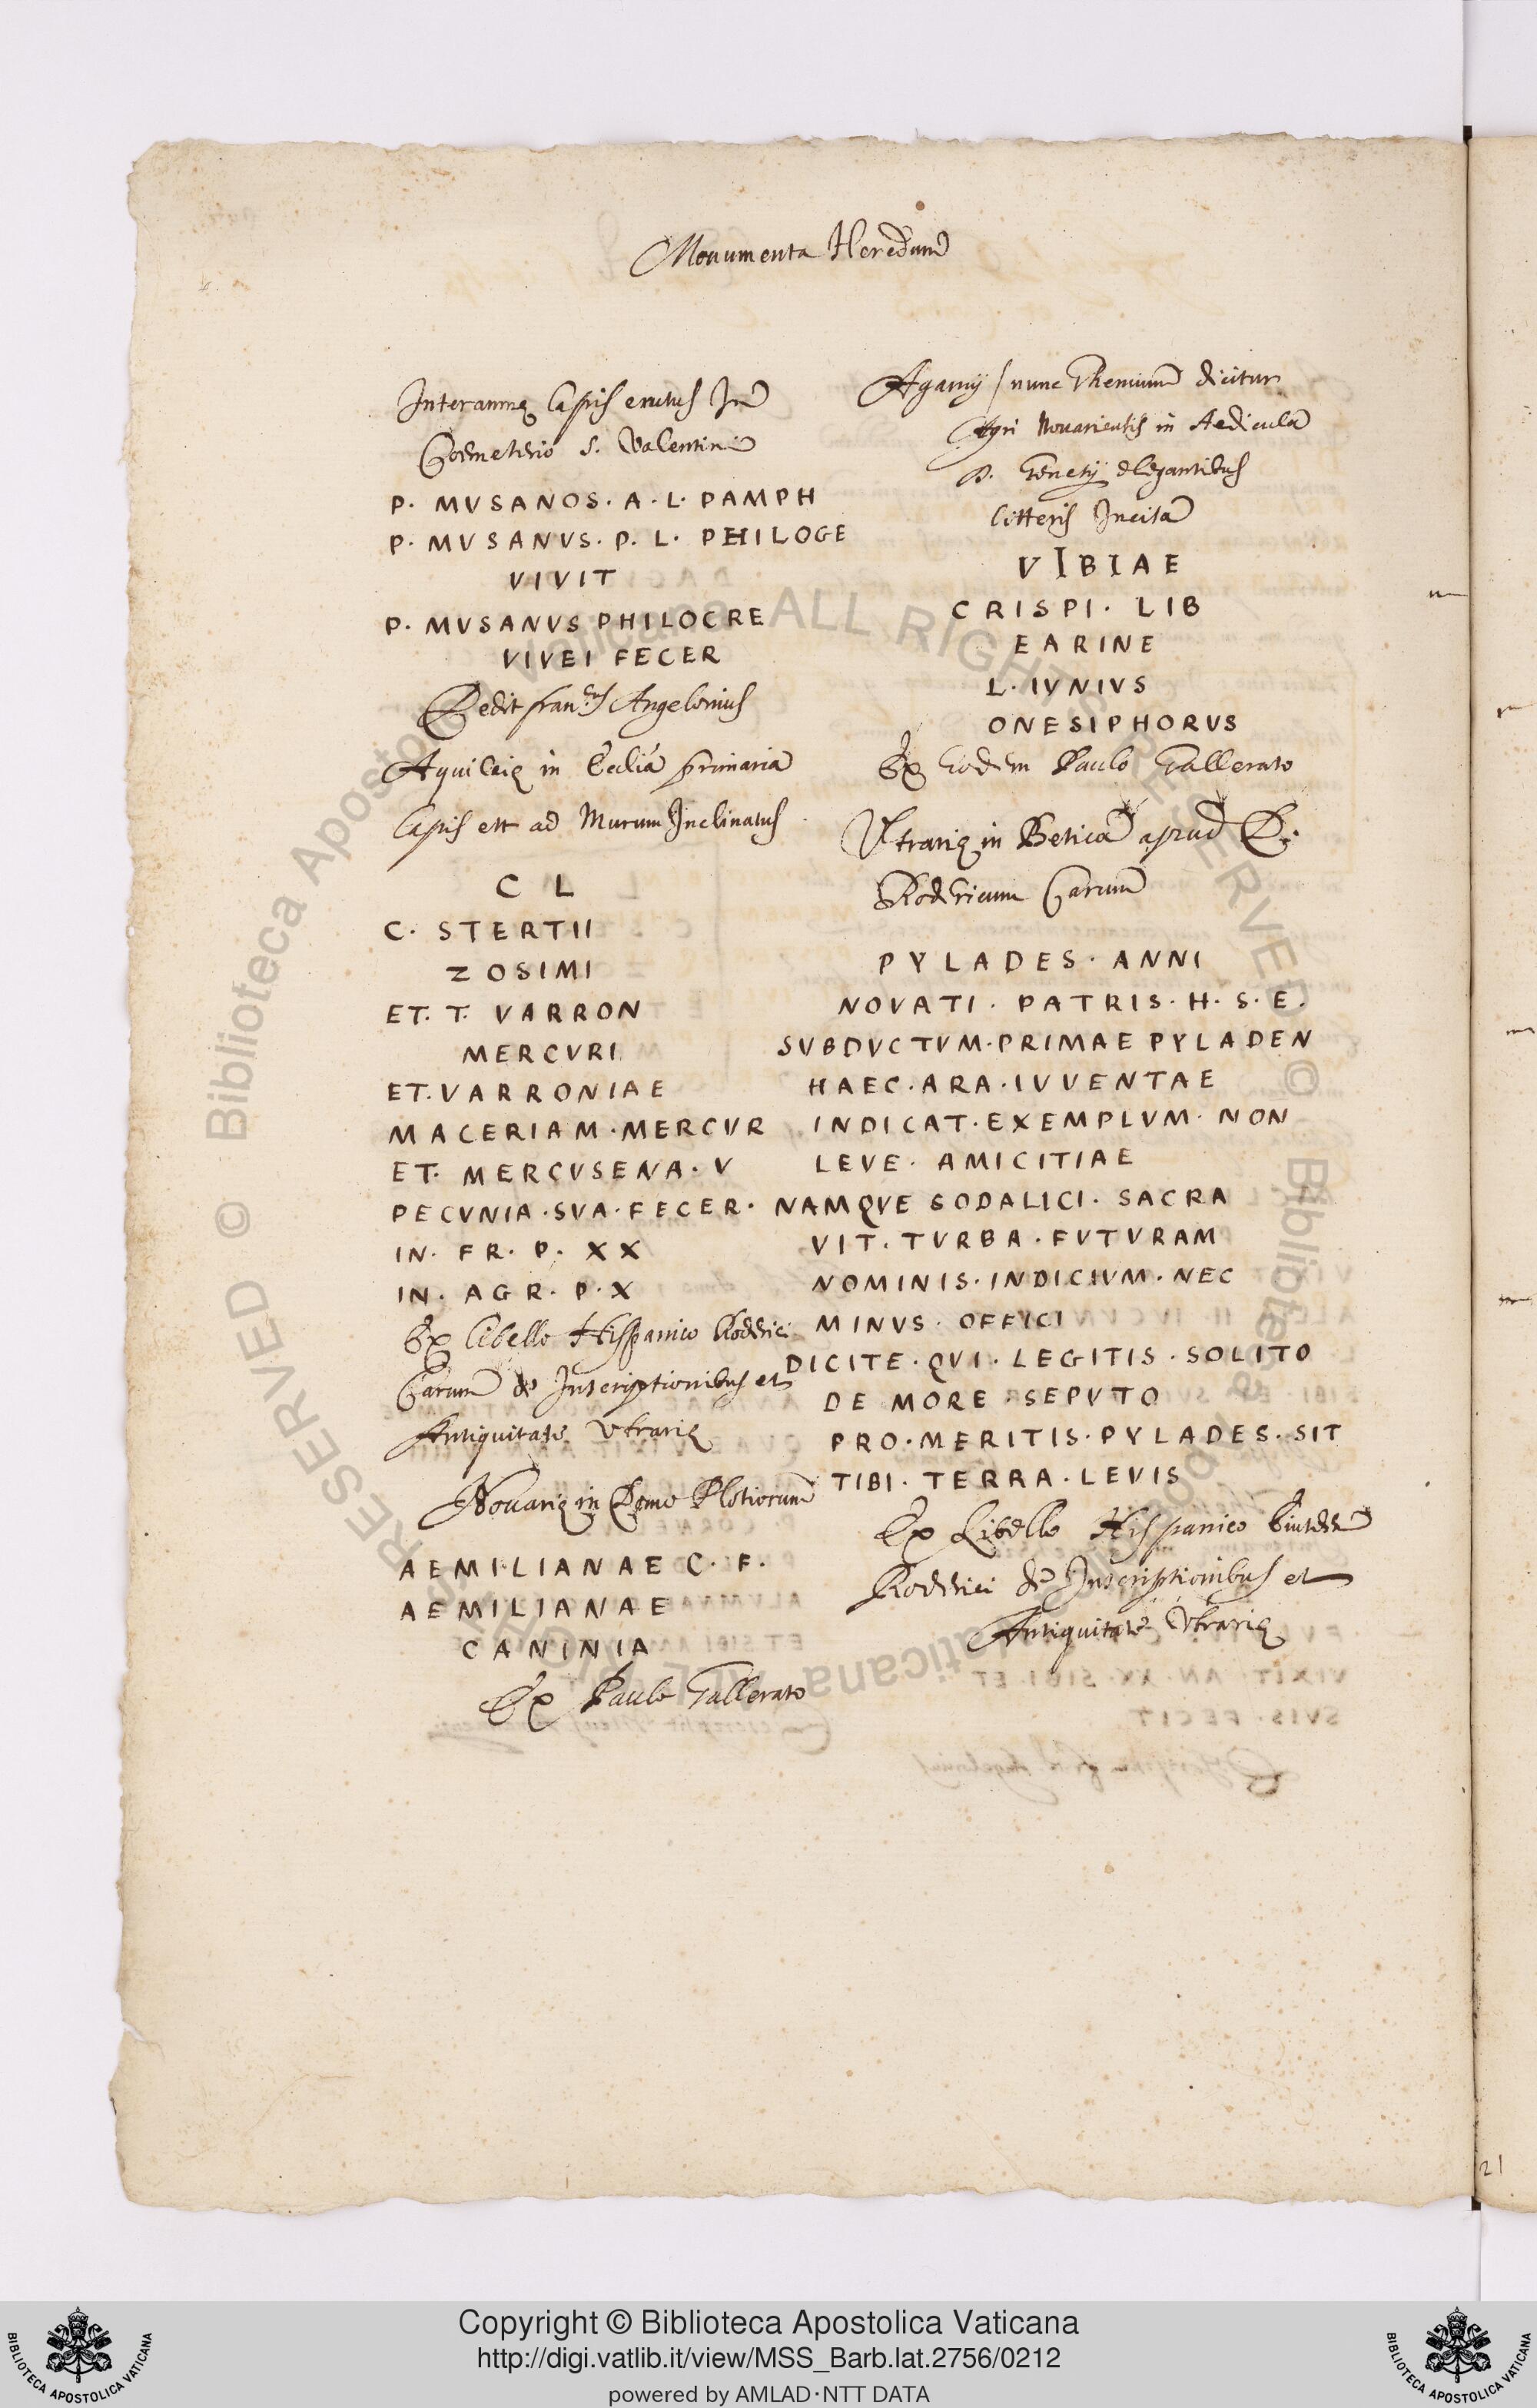 Monumenta Heredum
Interamnę lapis erutus In
Coemeterio S. Valentini
P. MVSANOS. A. L. PAMPH
P. MVSANVS. P. L. PHILOGE
VIVIT
P. MVSANVS PHILOCRE
VIVEI FECER
Dedit Fran.cus Angelonius
Aquileię in Ecclia primaria
lapis est ad Murum Inclinatus
C L
C. STERTII
ZOSIMI
ET. T. VARRON
MERCVRI
ET. VARRONIAE
MACERIAM. MERCVR
ET. MERCVSENA. V
PECVNIA. SVA. FECER.
IN. FR. P. XX
IN. AGR. P. X
Ex libello Hispanico Roderici
Carum de Inscriptionibus et
Antiquitate Utrarię
Nouarię in Domo Plotiorum
AEMILIANAE C. F.
AEMILIANAE
CANINIA
Ex Paulo Gallerato
Agamij / nunc Ghemium dicitur
Agri Nouariensis in Aedicula
D. Genesij elegantibus
litteris Incisa
VIBIAE
CRISPI. LIB
EARINE
L. IVNIVS
ONESIPHORVS
Ex Eodem Paulo Gallerato
Utrarię in Betica apud D.
Rodericum Carum
PYLADES. ANNI
NOVATI. PATRIS. H. S. E.
SVBDVCTVM. PRIMAE PYLADEN
HAEC. ARA. IVVENTAE
INDICAT. EXEMPLVM. NON
LEVE. AMICITIAE
NAMQVE SODALICI. SACRA
VIT. TVRBA. FVTVRAM
NOMINIS. INDICIVM. NEC
MINVS. OFFICI
DICITE. QVI. LEGITIS. SOLITO
DE MORE. SEPVTO
PRO. MERITIS. PYLADES. SIT
TIBI. TERRA. LEVIS
Ex Libello Hispanico Eiusdem
Roderici de Inscriptionibus et
Antiquitate Utrarię
21
Copyright © Biblioteca Apostolica Vaticana
http://digi.vatlib.it/view/MSS_Barb.lat.2756/0212
powered by AMLAD·NTT DATA
BIBLIOTECA APOSTOLICA VATICANA
BIBLIOTECA APOSTOLICA VATICANA